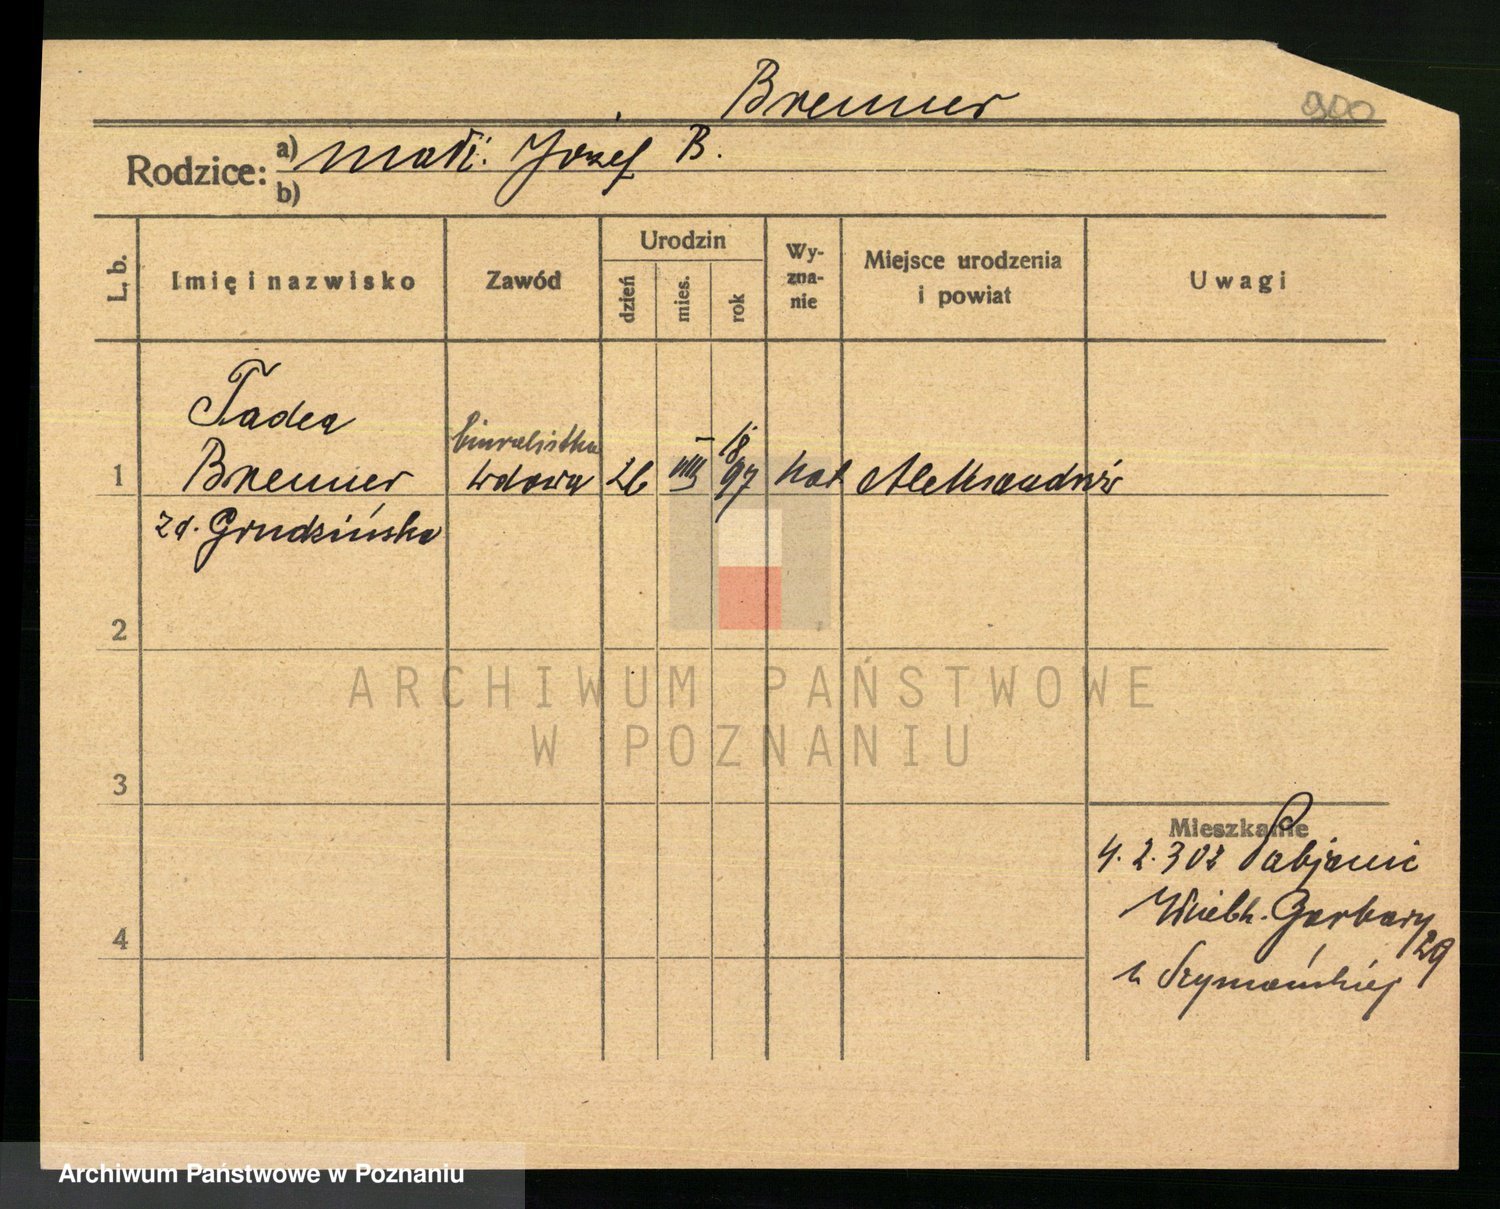 Brenner
900
Rodzice: a) małż. Józef B.
b)
L. b.
Imię i nazwisko
Zawód
Urodzin
dzień
mies.
rok
Wy-
zna-
nie
Miejsce urodzenia
i powiat
Uwagi
Tadea
Brenner
zd. Grudzińska
biuralistka
wdowa
26
VIII
18
97
kat
Aleksandrów
1
2
3
4
ARCHIWUM PAŃSTWOWE
W POZNANIU
Mieszkanie
4.2.30z Pabjanic
Wielk. Garbary
29
u Szymańskiej
Archiwum Państwowe w Poznaniu